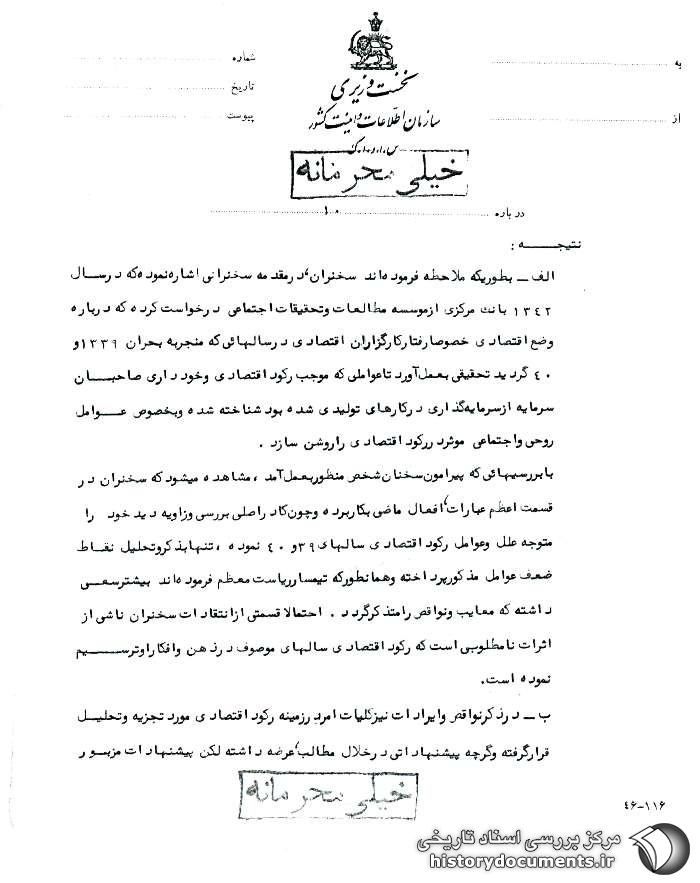 به
از
نخست وزیری
سازمان اطلاعات و امنیت کشور
س.ا.و.ا.ک
شماره
تاریخ
پیوست
خیلی محرمانه
درباره ۱۰
نتیجه :
الف ـ بطوریکه ملاحظه فرموده‌اند سخنران، درمقدمه سخنرانی اشاره نموده که درسال
۱۳۴۲ بانک مرکزی ازموسسه مطالعات وتحقیقات اجتماعی درخواست کرده که درباره
وضع اقتصادی خصوصا رفتارکارگزاران اقتصادی درسالهائی که منجربه بحران ۱۳۳۹ و
۴۰ گردید تحقیقی بعمل‌آورد تاعواملی که موجب رکود اقتصادی وخودداری صاحبان
سرمایه ازسرمایه‌گذاری درکارهای تولیدی شده بود شناخته شده وبخصوص عوامل
روحی واجتماعی موثردررکود اقتصادی راروشن سازد .
بابررسیهائی که پیرامون سخنان شخص منظوربعمل‌آمد ، مشاهده میشودکه سخنران در
قسمت اعظم عبارات، افعال ماضی بکاربرده وچون کادراصلی بررسی وزاویه دید خود را
متوجه علل وعوامل رکود اقتصادی سالهای ۳۹ و ۴۰ نموده ، تنهابذکروتحلیل نقاط
ضعف عوامل مذکورپرداخته وهمانطورکه تیمسارریاست معظم فرموده‌اند بیشترسعی
داشته که معایب ونواقص رامتذکرگردد . احتمالا قسمتی ازانتقادات سخنران ناشی از
اثرات نامطلوبی است که رکود اقتصادی سالهای موصوف درذهن وافکاراوترسیم
نموده است.
ب ـ درذکرنواقص وایرادات نیزکلیات امردرزمینه رکود اقتصادی مورد تجزیه وتحلیل
قرارگرفته وگرچه پیشنهاداتی درخلال مطالب، عرضه داشته لکن پیشنهادات مزبور
خیلی محرمانه
۴۶-۱۱۶
مرکز بررسی اسناد تاریخی
historydocuments.ir